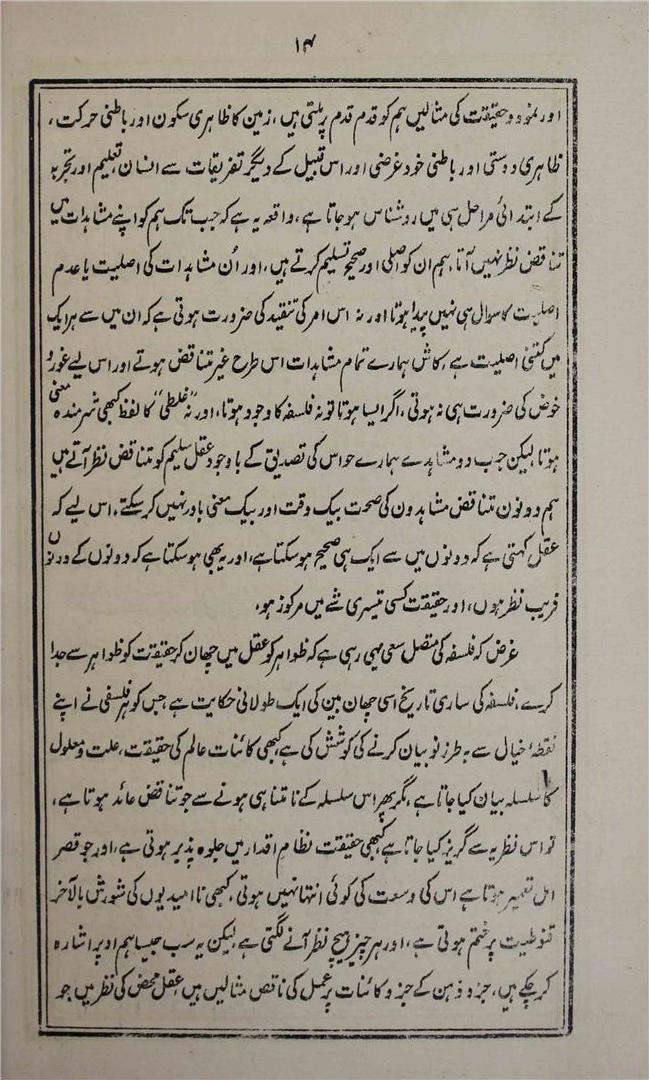 ۱۴
اور نمود و حقیقت کی مثالیں ہم کو قدم قدم پر ملتی ہیں، زمین کا ظاہری سکون اور باطنی حرکت،
ظاہری دوستی اور باطنی خود غرضی اور اس قبیل کے دیگر تفریقات سے انسان تعلیم اور تجربہ
کے ابتدائی مراحل ہی میں روشناس ہو جاتا ہے، واقعہ یہ ہے کہ جب تک ہم کو اپنے مشاہدات میں
تناقض نظر نہیں آتا، ہم ان کو اصلی اور صحیح تسلیم کرتے ہیں، اور اُن مشاہدات کی اصلیت یا عدم
اصلیت کا سوال ہی نہیں پیدا ہوتا اور نہ اس امر کی تنقید کی ضرورت ہوتی ہے کہ ان میں سے ہر ایک
میں کتنی اصلیت ہے، کاش ہمارے تمام مشاہدات اس طرح غیر متناقض ہوتے اور اس لیے غور و
خوض کی ضرورت ہی نہ ہوتی، اگر ایسا ہوتا تو نہ فلسفہ کا وجود ہوتا، اور نہ "غلطی" کا لفظ کبھی شرمندہ معنی
ہوتا لیکن جب دو مشاہدے ہمارے حواس کی تصدیق کے باوجود عقل سلیم کو متناقض نظر آتے ہیں
ہم دونوں متناقض مشاہدوں کی صحت بیک وقت اور بیک معنی باور نہیں کر سکتے، اس لیے کہ
عقل کہتی ہے کہ دونوں میں سے ایک ہی صحیح ہو سکتا ہے، اور یہ بھی ہو سکتا ہے کہ دونوں کے دونوں
فریب نظر ہوں، اور حقیقت کسی تیسری شے میں مرکوز ہو،
غرض کہ فلسفہ کی متصل سعی یہی رہی ہے کہ ظواہر کو عقل میں چھان کر حقیقت کو ظواہر سے جدا
کرے، فلسفہ کی ساری تاریخ اسی چھان بین کی ایک طولانی حکایت ہے جس کو ہر فلسفی نے اپنے
نقطۂ خیال سے بہ طرز نو بیان کرنے کی کوشش کی ہے، کبھی کائنات عالم کی حقیقت، علت و معلول
کا سلسلہ بیان کیا جاتا ہے، مگر پھر اس سلسلہ کے نامتناہی ہونے سے جو تناقض عائد ہوتا ہے،
تو اس نظریہ سے گریز کیا جاتا ہے کبھی حقیقت نظام اقدار میں جلوہ پذیر ہوتی ہے، اور جو قصر
امل تعمیر ہوتا ہے اس کی وسعت کی کوئی انتہا نہیں ہوتی، کبھی ناامیدیوں کی شورش بالآخر
قنوطیت پر ختم ہوتی ہے، اور ہر چیز ہیچ نظر آنے لگتی ہے لیکن یہ سب جیسا ہم اوپر اشارہ
کر چکے ہیں، جزو ذہن کے جزو کائنات پر عمل کی ناقص مثالیں ہیں، عقل محض کی نظر میں جو